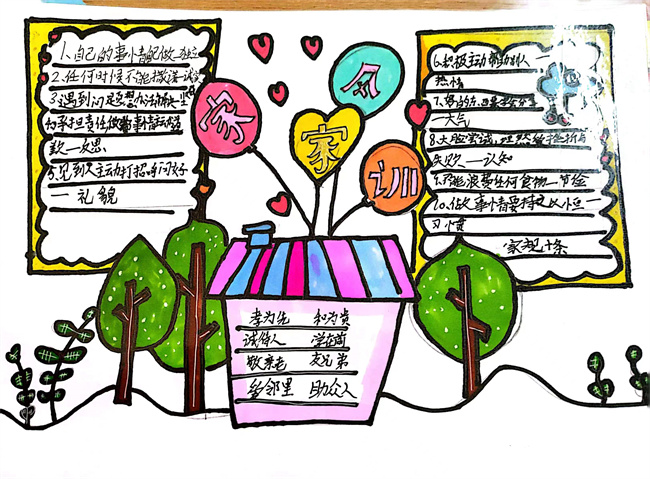 1、自己的事情自己做 独立
2、任何时候不能撒谎一诚实
3、遇到问题想办法解决一坚
为承担责任做事情
敢一
5、见到人主动打招呼问好
一礼貌
家
风
家
训
孝为先 和为贵
诚待人 学在前
敬亲老 友兄弟
乡邻里 助众人
6、积极主动帮助人一
热情
一大气
8、大胆尝试，坦然经挫折与
失败一认知
9、不能浪费任何食物一节俭
10、做事情要持之以恒一
习惯
家规十条